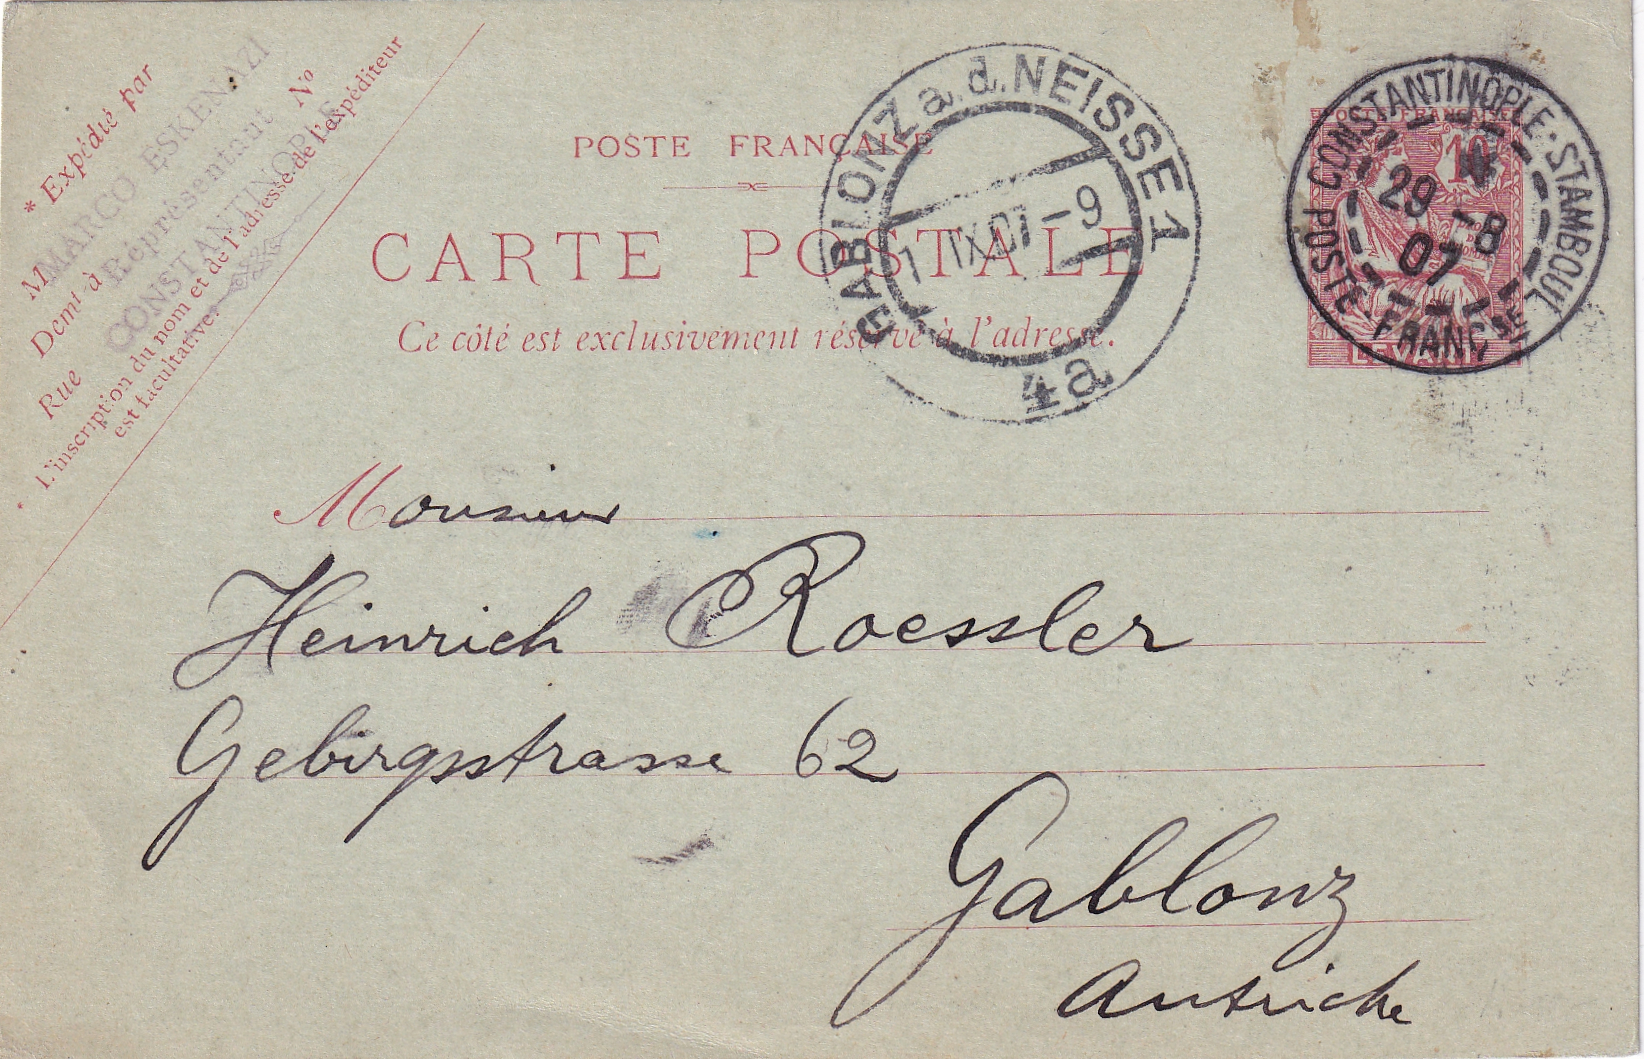 * Expédié par
M MARCO ESKENAZI
Représentant
Demt à CONSTANTINOPLE
Rue No
L'inscription du nom et de l'adresse de l'expéditeur
est facultative.
POSTE FRANÇAISE
CARTE POSTALE
Ce côté est exclusivement réservé à l'adresse.
GABLONZ a. d. NEISSE 1
1 IX 07 - 9
4a
POSTE FRANÇAISE
10
LEVANT
CONSTANTINOPLE-STAMBOUL
29 -8
07
POSTE FRANÇSE
Monsieur
Heinrich Roessler
Gebirgsstrasse 62
Gablonz
Autriche